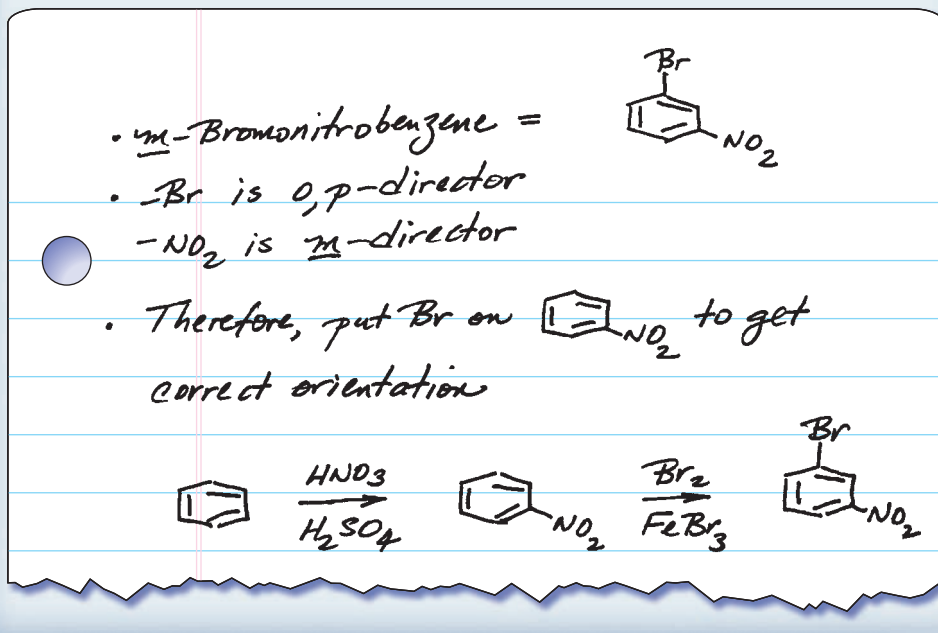 Br
• m-Bromonitrobenzene =
NO2
• -Br is o,p-director
-NO2 is m-director
• Therefore, put Br on NO2 to get
correct orientation
Br
HNO3 Br2
H2SO4 NO2 FeBr3 NO2